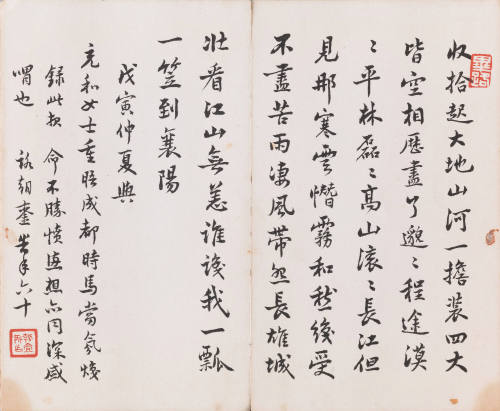 收拾起大地山河一擔裝四大
皆空相歷盡了邈〻程途漠
〻平林磊〻高山滾〻長江但
見那寒雲憯霧和愁織受
不盡苦雨淒風帶怨長雄城
壯看江山無恙誰識我一瓢
一笠到襄陽
戊寅仲夏與
充和女士重晤成都時馬當氛
錄此報命不勝憤恚想亦同深感
喟也 路朝鑾 六十